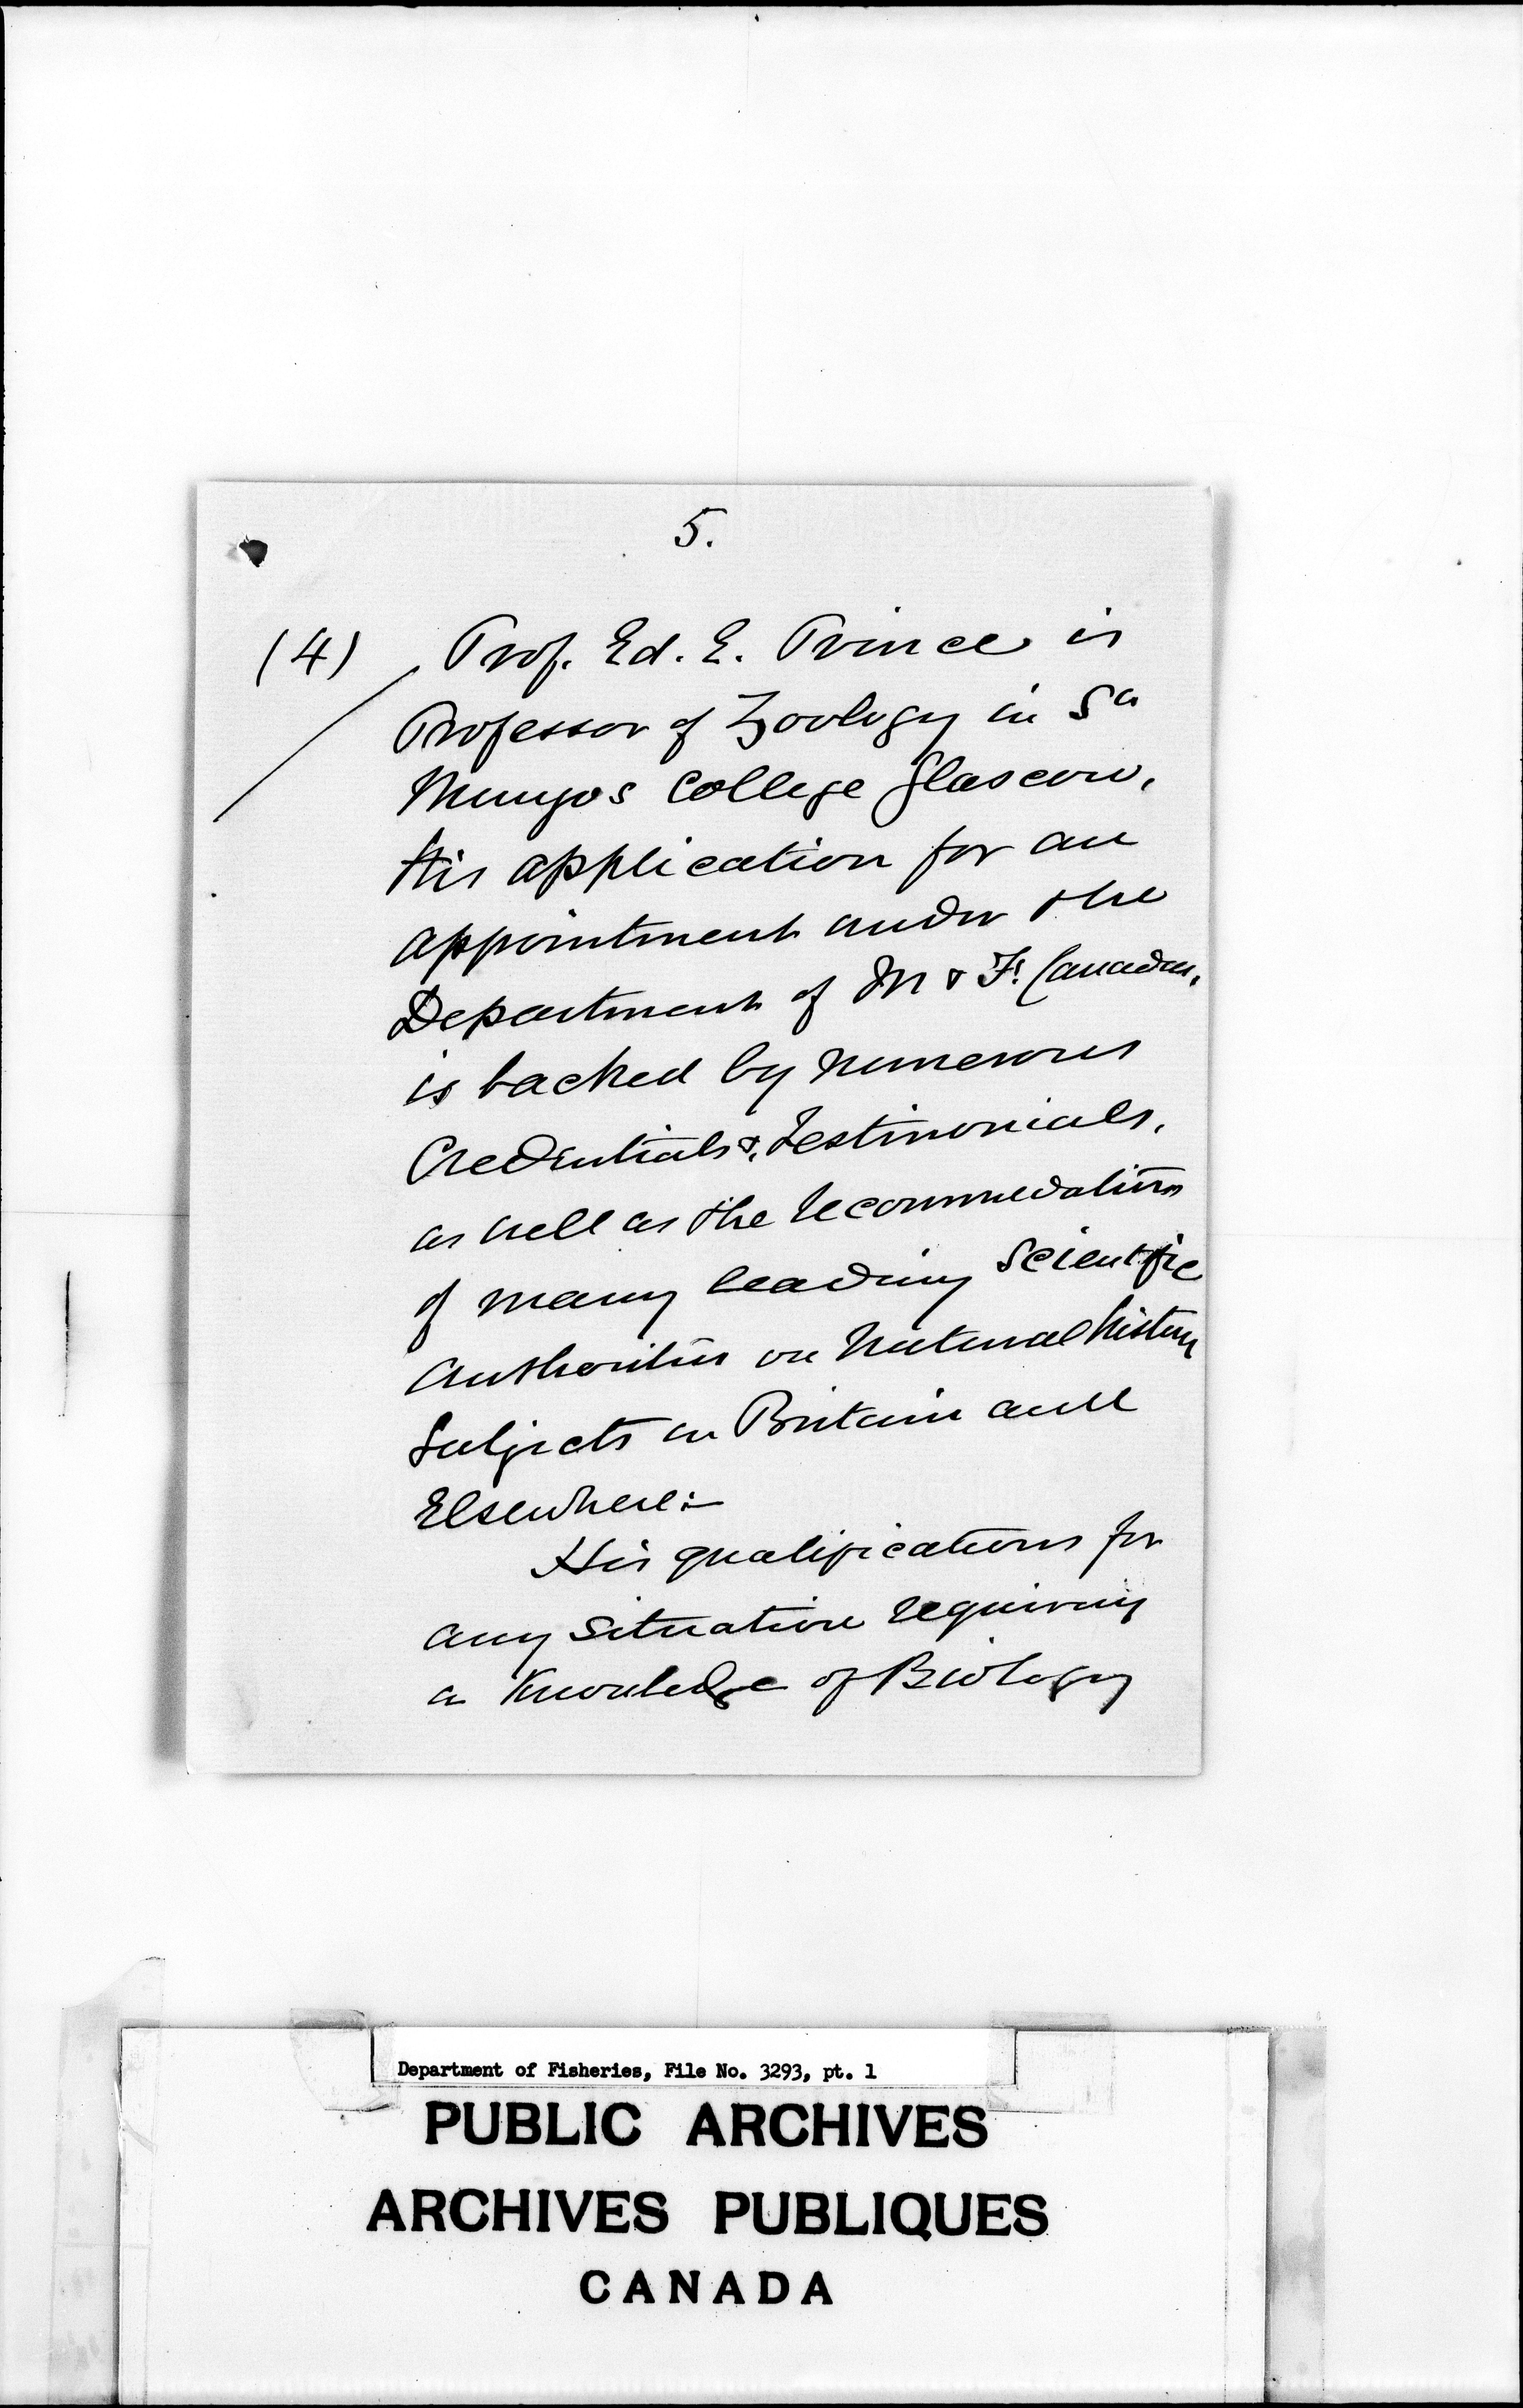 5.
(4) Prof. Ed. E. Prince is
Professor of Zoology in St
Mungos College Glascow,
His application for an
appointment under the
Department of M & F. Canada,
is backed by numerous
Credentials &, Testimonials,
as well as the recommedations
of many leading Scientific
authorities on Natural history
Subjects in Britain and
Elsewhere:-
His qualifications for
any situation requiring
a Knowledge of Biology
Department of Fisheries, File No. 3293, pt. 1
PUBLIC ARCHIVES
ARCHIVES PUBLIQUES
CANADA